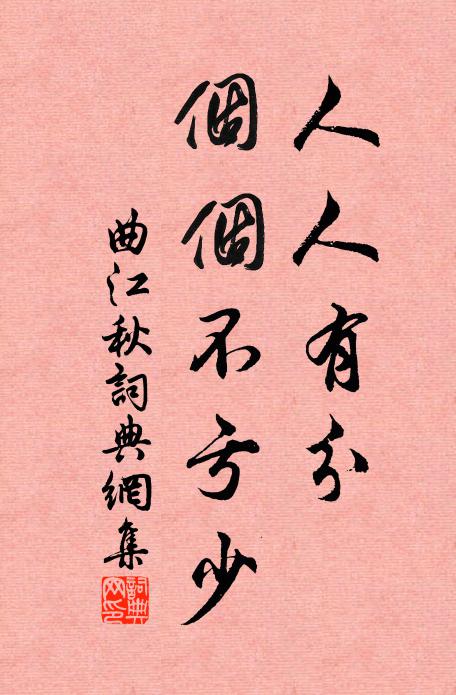 人人有分
個個不亏少
曲江秋詞典網集
詞典網印